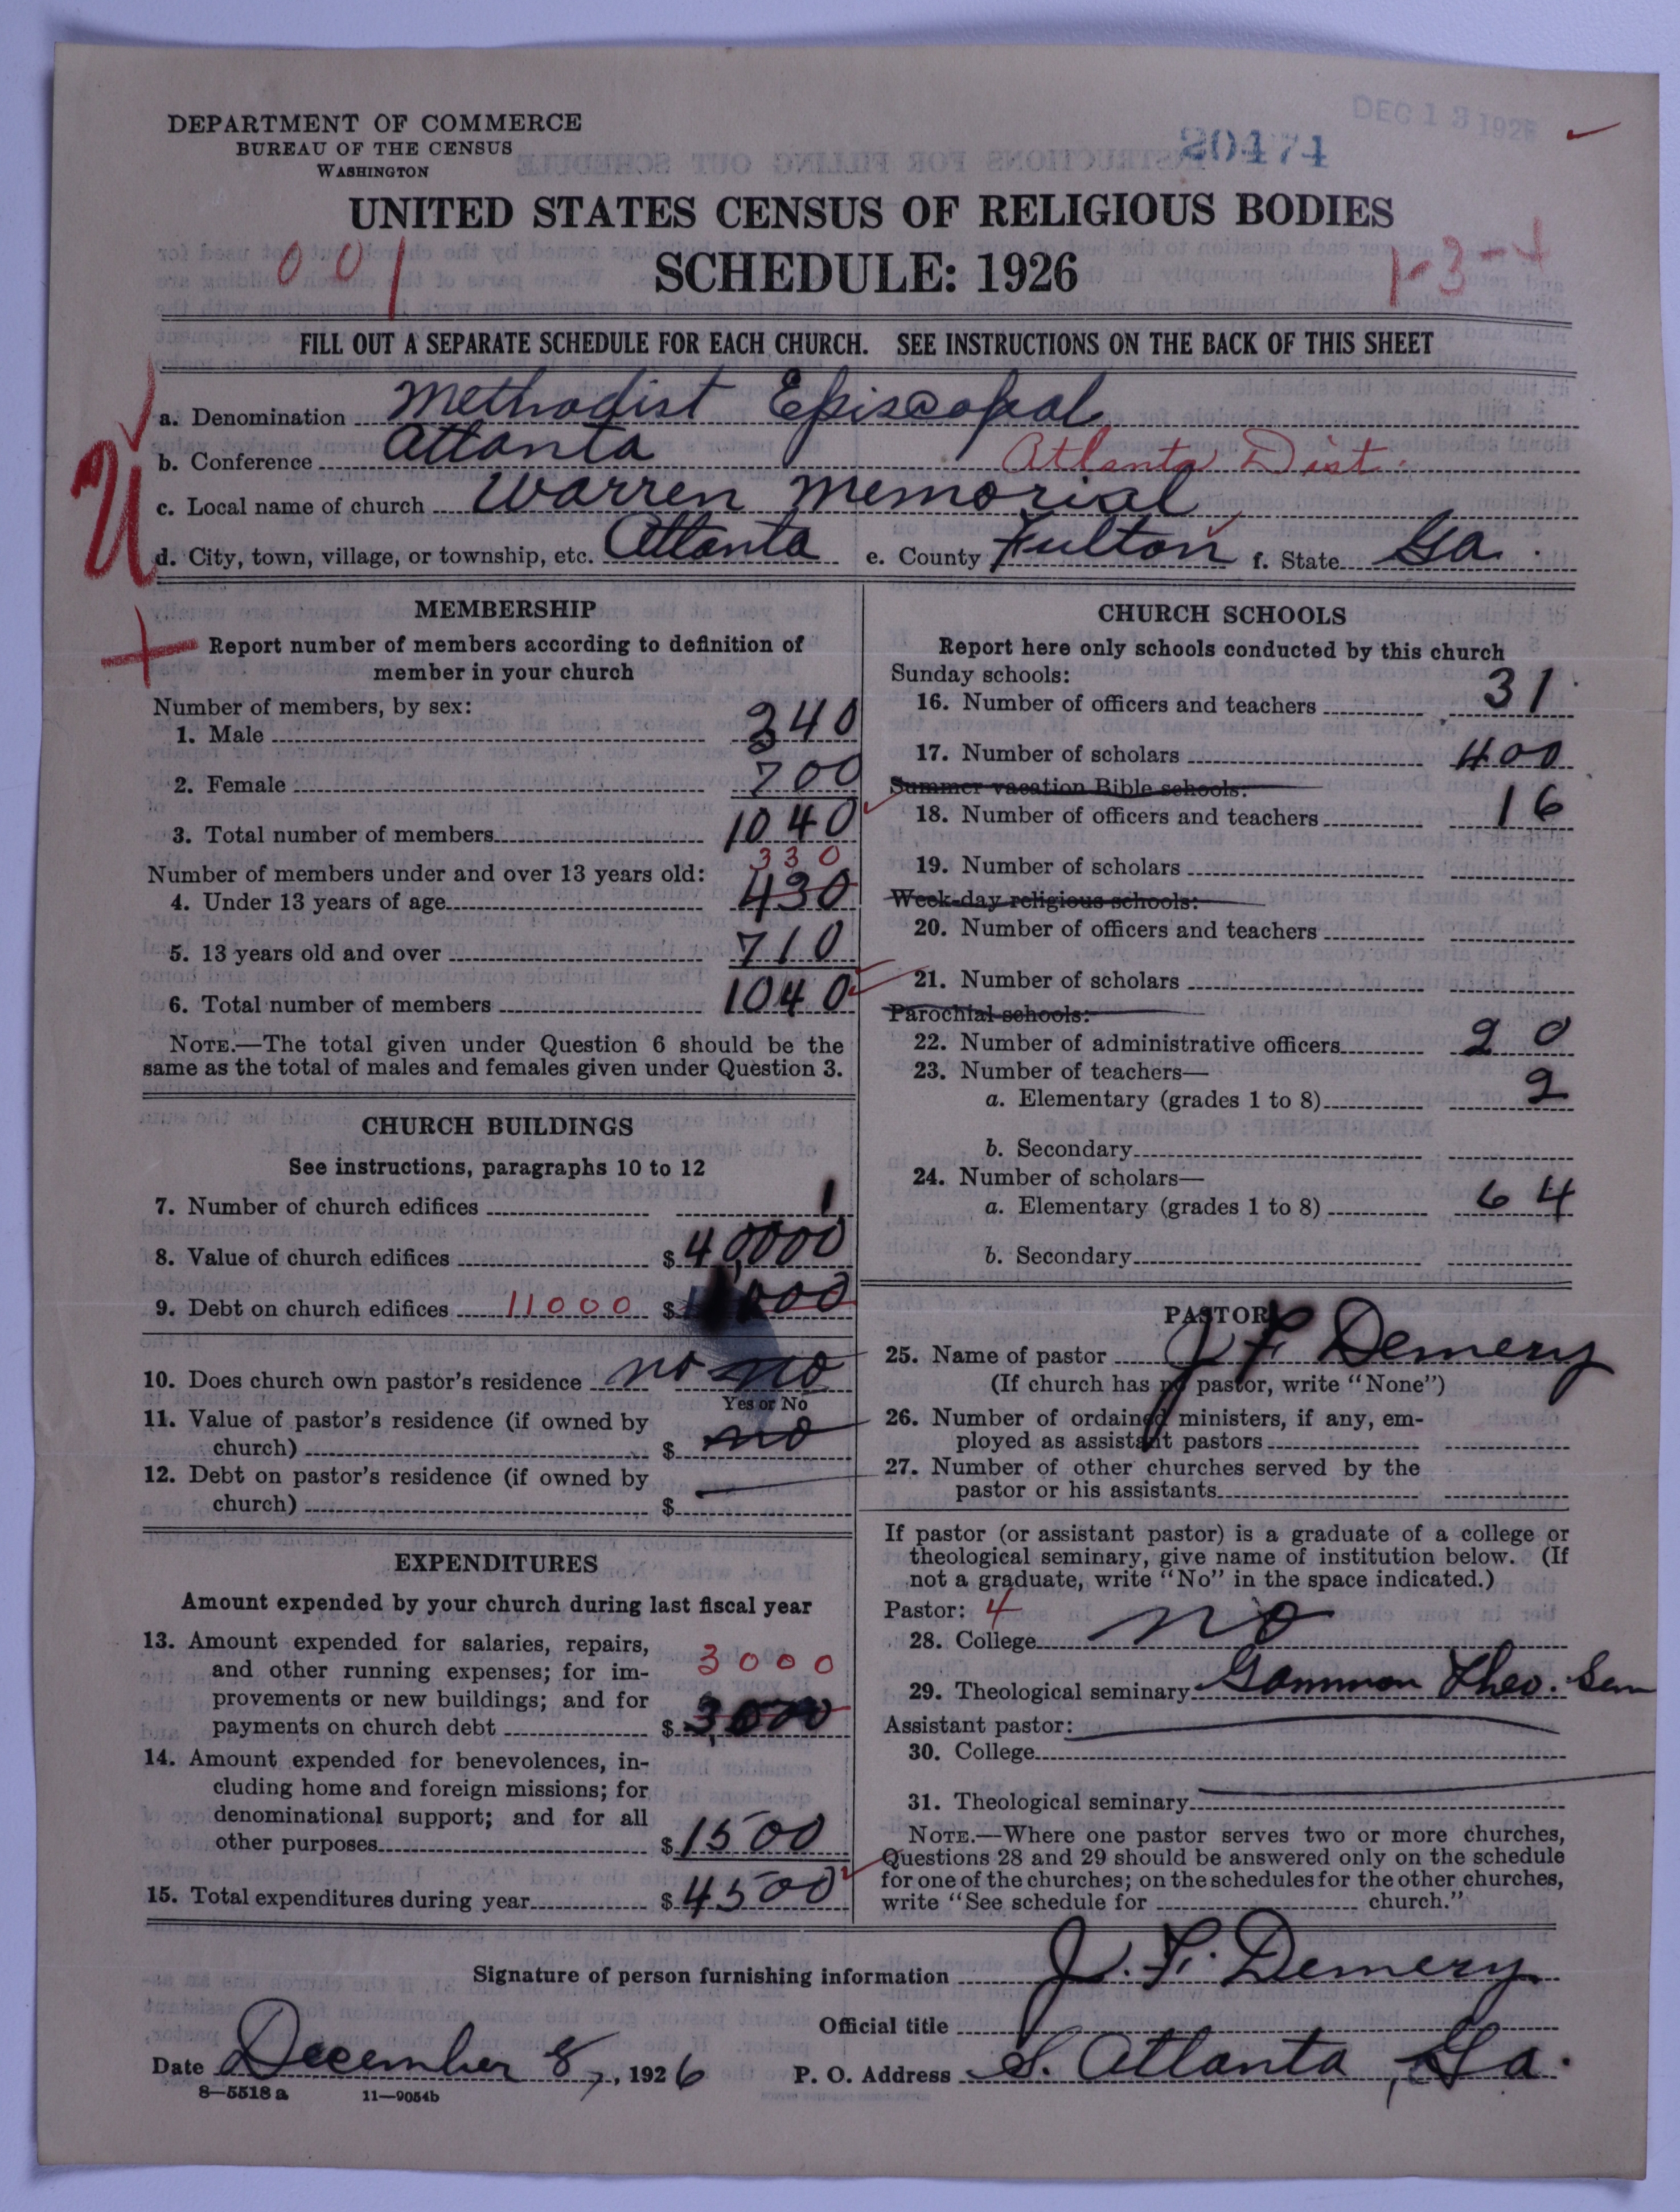 DEPARTMENT OF COMMERCE
BUREAU OF THE CENSUS
WASHINGTON
DEC 13 1926
20474
UNITED STATES CENSUS OF RELIGIOUS BODIES
001
SCHEDULE: 1926
1-3-4
FILL OUT A SEPARATE SCHEDULE FOR EACH CHURCH. SEE INSTRUCTIONS ON THE BACK OF THIS SHEET
a. Denomination Methodist Episcopal
b. Conference Atlanta Atlanta Dist.
c. Local name of church Warren Memorial
d. City, town, village, or township, etc. Atlanta e. County Fulton f. State Ga.
MEMBERSHIP
Report number of members according to definition of
member in your church
Number of members, by sex:
1. Male 340
2. Female 700
3. Total number of members 1040
330
Number of members under and over 13 years old:
4. Under 13 years of age 430
5. 13 years old and over 710
6. Total number of members 1040
NOTE.—The total given under Question 6 should be the
same as the total of males and females given under Question 3.
CHURCH BUILDINGS
See instructions, paragraphs 10 to 12
7. Number of church edifices 1
8. Value of church edifices $ 40,000
9. Debt on church edifices 11000 $ 000
10. Does church own pastor's residence no no
Yes or No
11. Value of pastor's residence (if owned by
church) $ no
12. Debt on pastor's residence (if owned by
church) $
EXPENDITURES
Amount expended by your church during last fiscal year
13. Amount expended for salaries, repairs,
and other running expenses; for im-
3000
provements or new buildings; and for
payments on church debt $ 3,000
14. Amount expended for benevolences, in-
cluding home and foreign missions; for
denominational support; and for all
other purposes $ 1500
15. Total expenditures during year $ 4500
CHURCH SCHOOLS
Report here only schools conducted by this church
Sunday schools:
16. Number of officers and teachers 31
17. Number of scholars 400
Summer vacation Bible schools:
18. Number of officers and teachers 16
19. Number of scholars
Week-day religious schools:
20. Number of officers and teachers
21. Number of scholars
Parochial schools:
22. Number of administrative officers 20
23. Number of teachers—
a. Elementary (grades 1 to 8) 2
b. Secondary
24. Number of scholars—
a. Elementary (grades 1 to 8) 64
b. Secondary
PASTOR
25. Name of pastor J F Demery
(If church has no pastor, write "None")
26. Number of ordained ministers, if any, em-
ployed as assistant pastors
27. Number of other churches served by the
pastor or his assistants
If pastor (or assistant pastor) is a graduate of a college or
theological seminary, give name of institution below. (If
not a graduate, write "No" in the space indicated.)
Pastor: 4
28. College no
29. Theological seminary Gammon Theo. Sem
Assistant pastor:
30. College
31. Theological seminary
NOTE.—Where one pastor serves two or more churches,
Questions 28 and 29 should be answered only on the schedule
for one of the churches; on the schedules for the other churches,
write "See schedule for church."
Signature of person furnishing information J. F. Demery
Official title
Date December 8, 1926 P. O. Address S. Atlanta, Ga.
8—5518 a 11—9054b